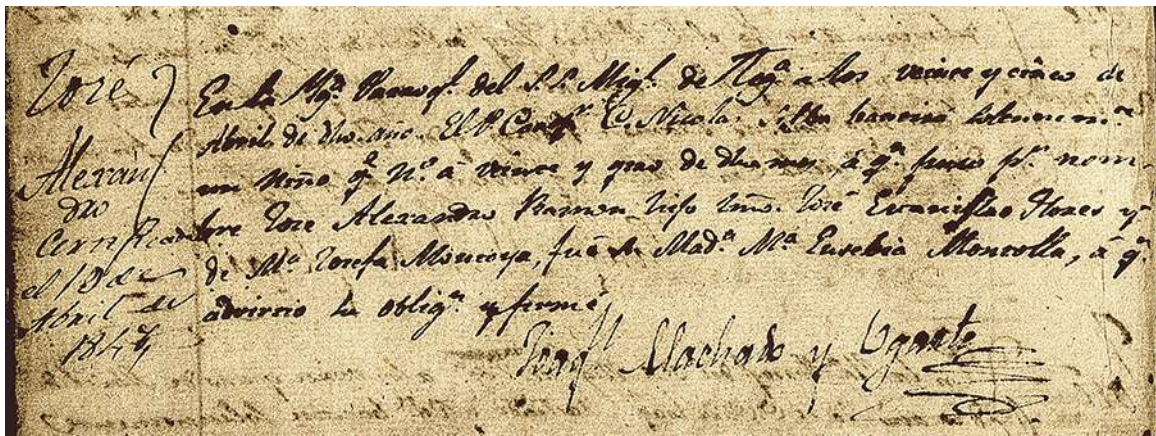 José
Alexan
dro
Certifiqué
el 19 de
Abril de
1847
En la Ygª Parroql. del S.S. Migl. de Tlagª a los veinte y cinco de
Abril de dho año. El P. C. Nicolas Silba bautisó solemnemte.
un Niño q. n.º á veinte y qtro de dho mes, á qn. puso pr. nom-
bre José Alexandro Ramon hijo lmo. José Evaristo Flores y
de Mª Josefa Montoya, fué su Madª Mª Eusebia Montolla, á qn.
advirtio la obligª y firmé
Joaqn. Machado y Ugarte